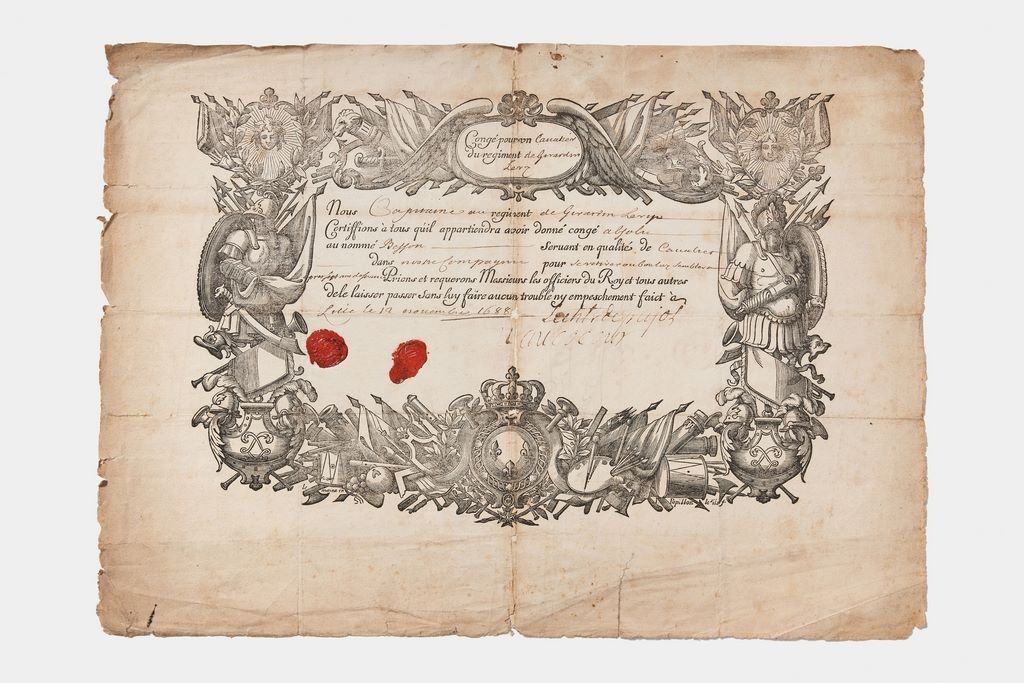 Congé pour un Cavalier
du regiment de Girardin
Lery
Nous Capitaine au regiment de Girardin Lery
Certiffions à tous qu'il appartiendra avoir donné congé absolu
au nommé Besson servant en qualités de Cavalier
dans nostre Compagnie pour se retirer ou bon luy semblera
Prions et requerons Messieurs les officiers du Roy et tous autres
de le laisser passer sans luy faire aucun trouble ny empeschement faict à
le 12 novembre 1688